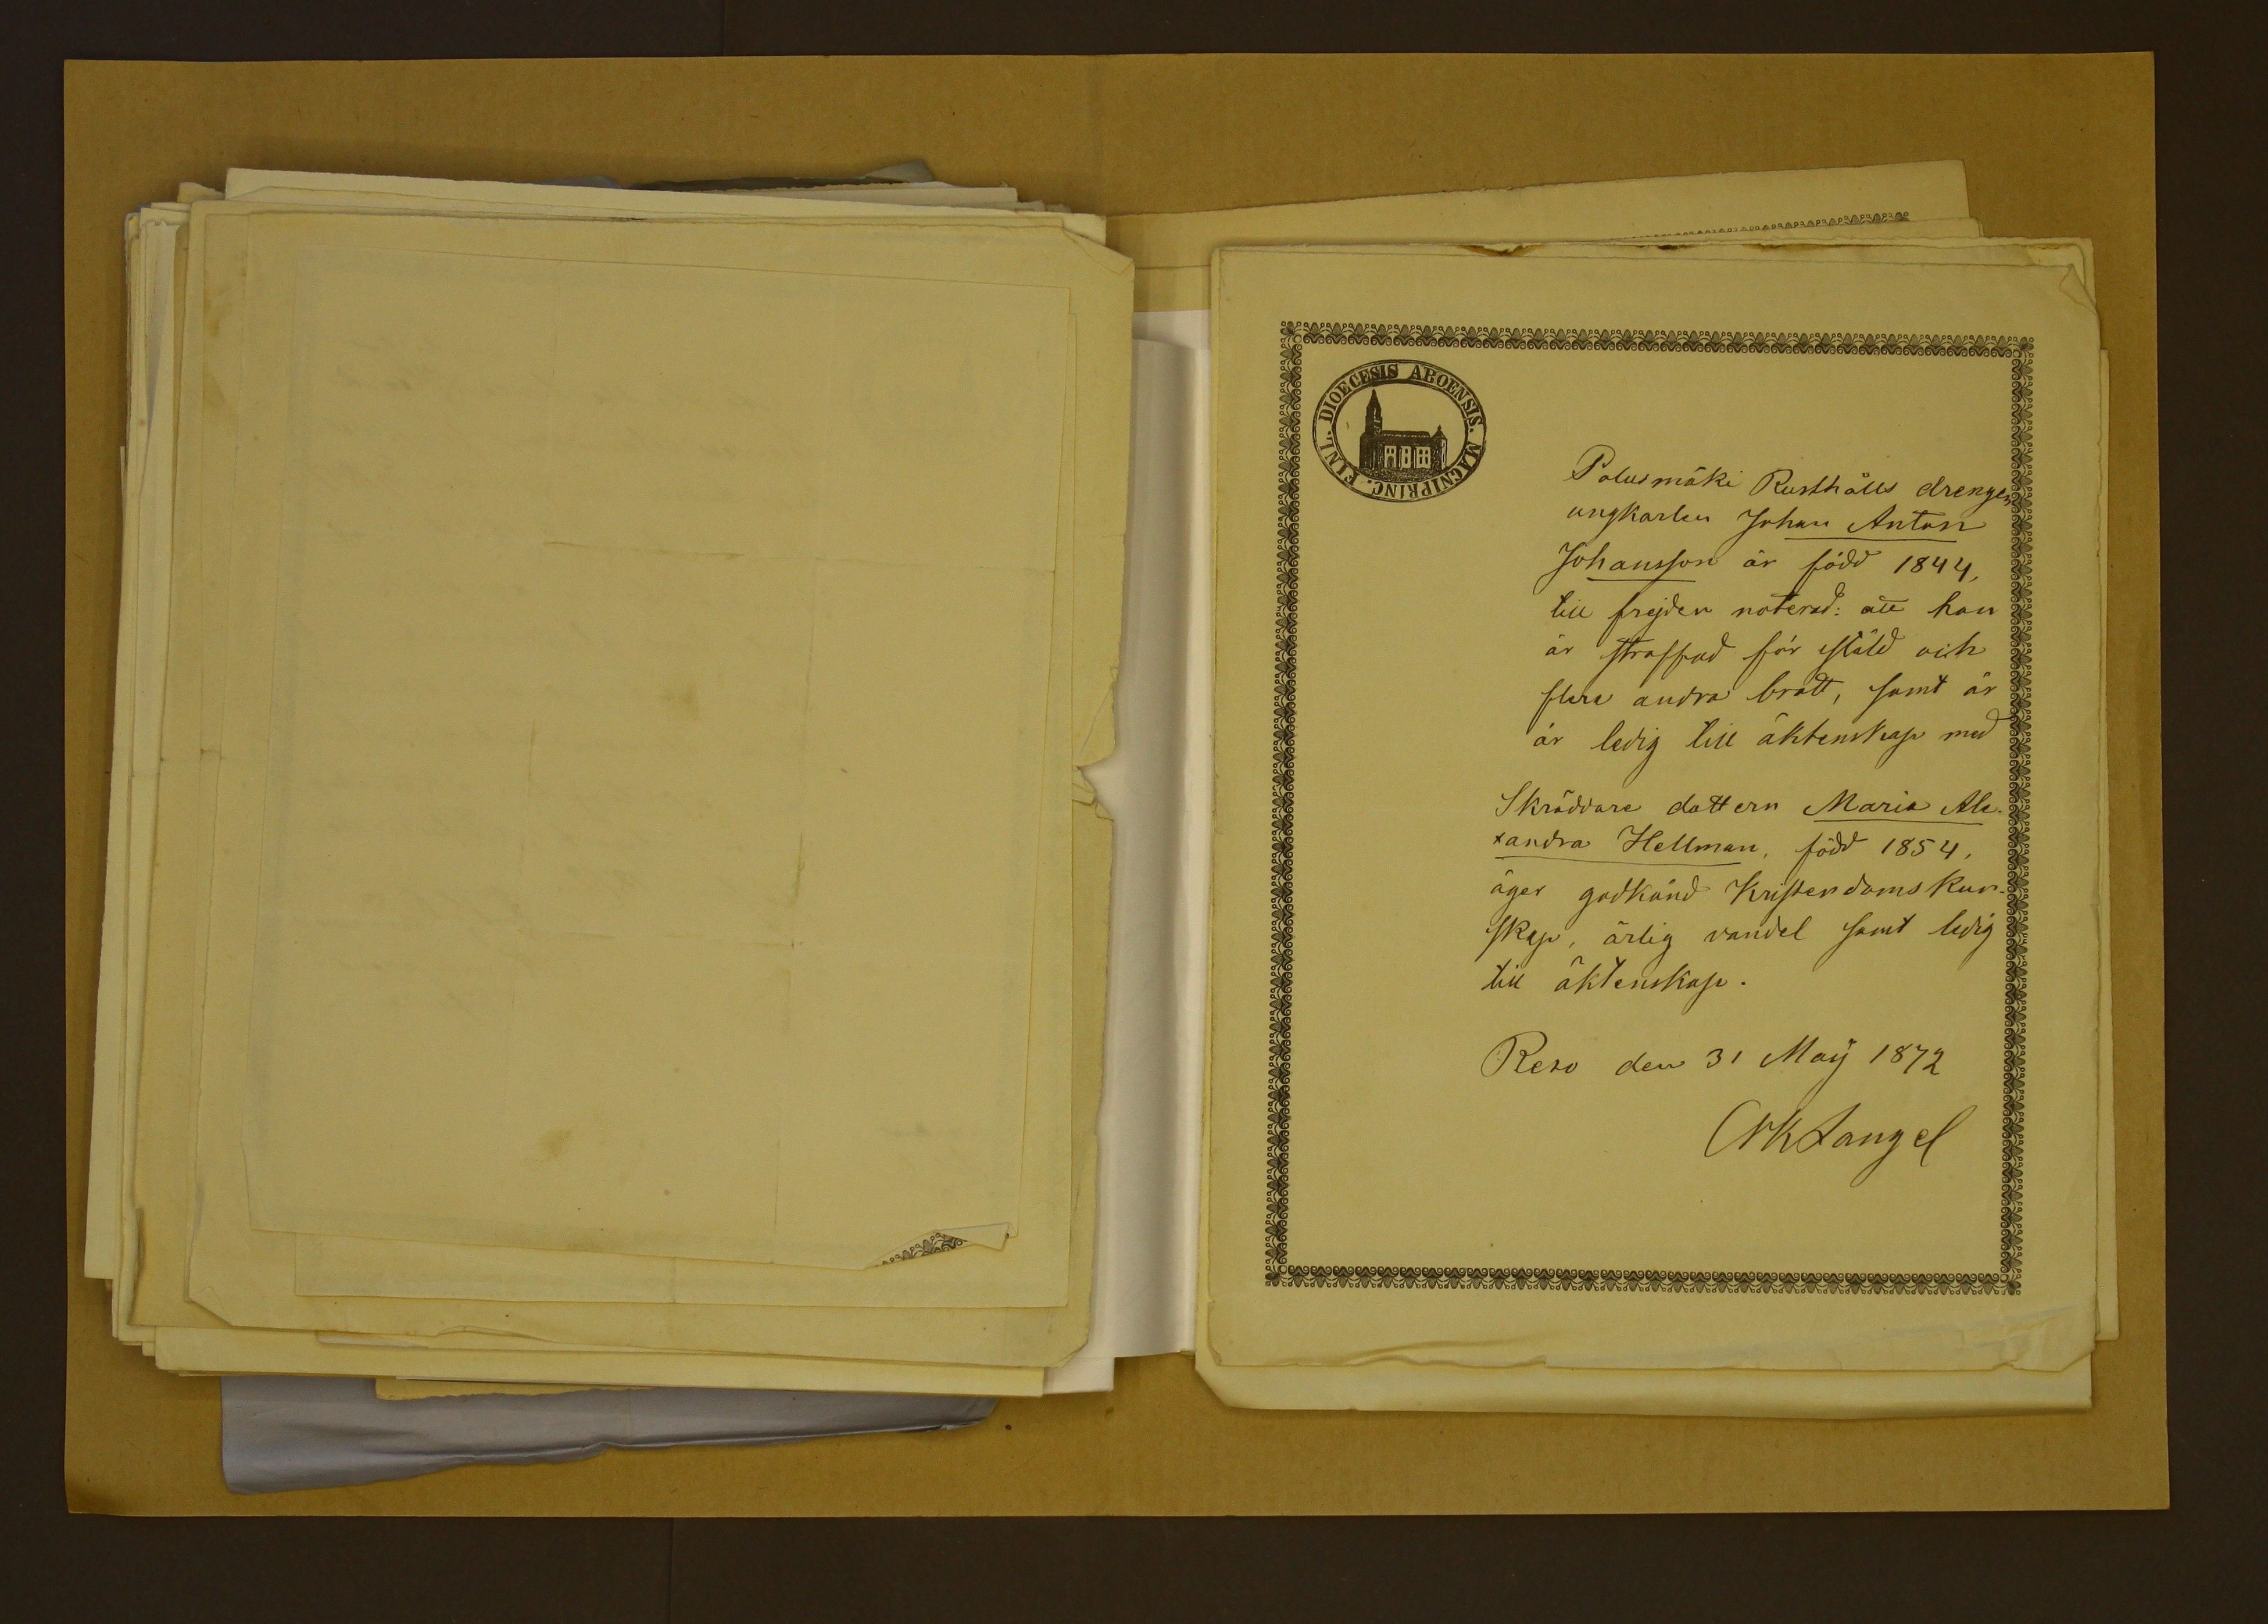 DIOECESIS ABOENSIS. MAGNIPRINC. FINL.
Polusmäki Rusthålls drengen
ungkarlen Johan Anton
Johansson är född 1844,
till frejden noterad: att han
är straffad för stöld och
flere andra brott, samt är
är ledig till äktenskap med
Skräddare dottern Maria Ale-
xandra Hellman, född 1854,
äger godkänd Kristendomskun-
skap, ärlig vandel samt ledig
till äktenskap.
Reso den 31 Maÿ 1872